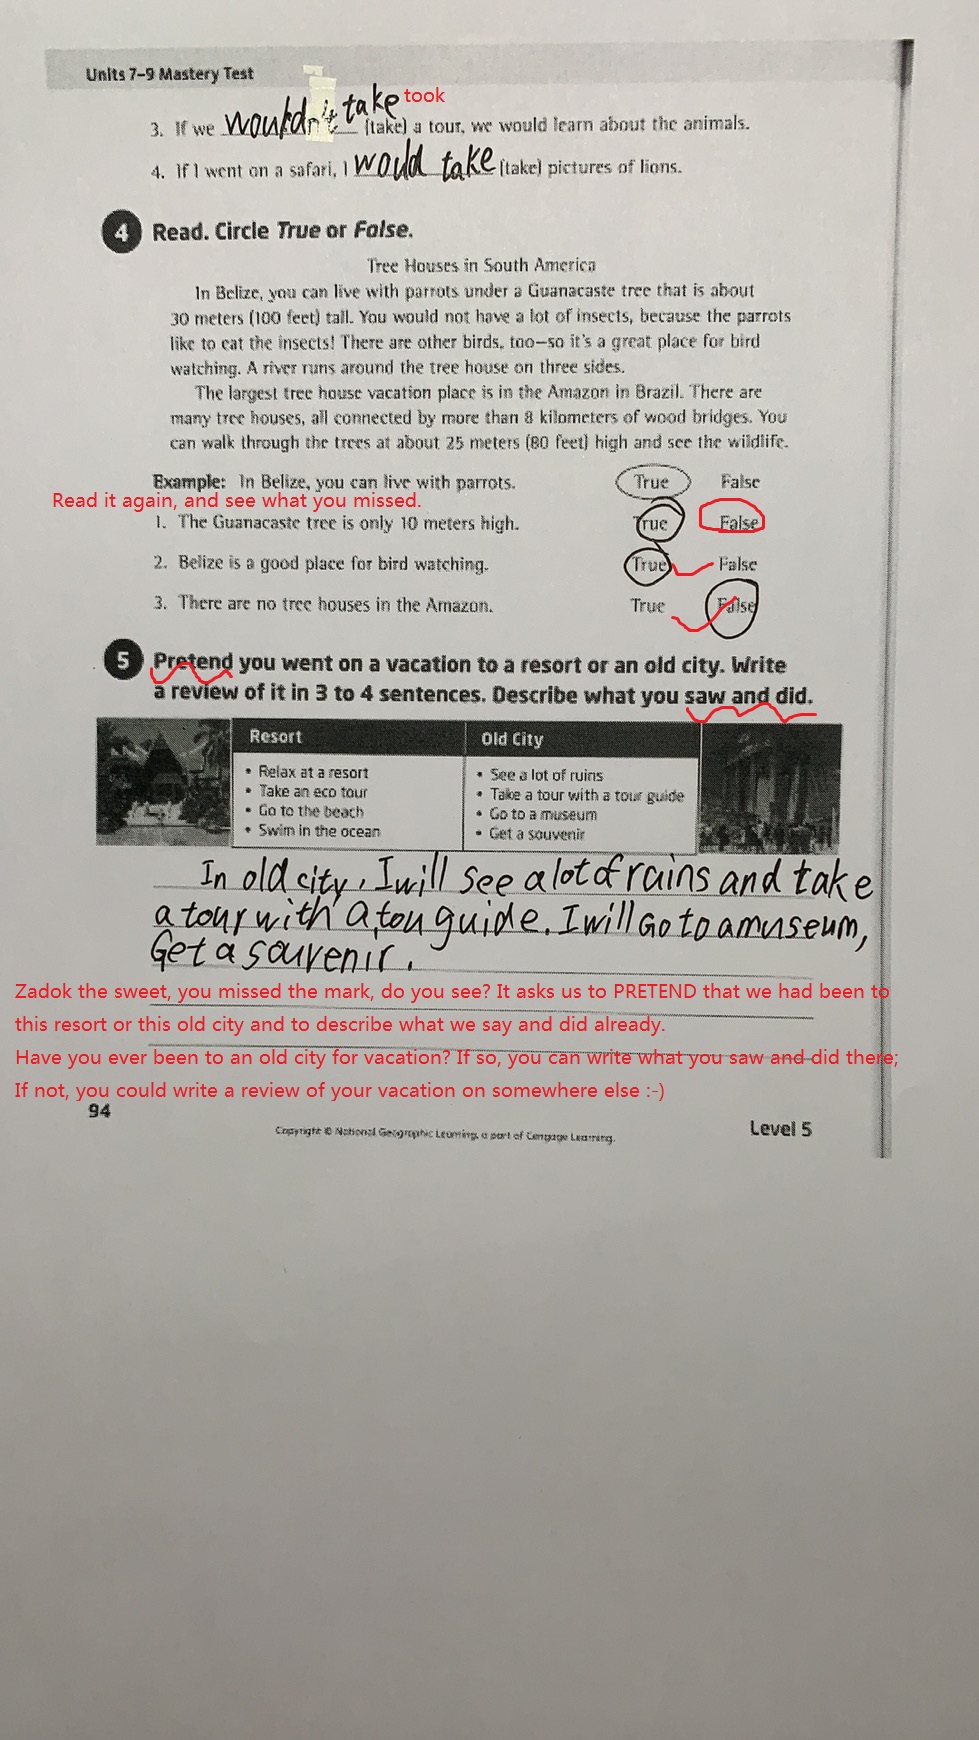 Units 7–9 Mastery Test
3. If we wouldn't take (take) a tour, we would learn about the animals.
took
4. If I went on a safari, I would take (take) pictures of lions.
4 Read. Circle True or False.
Tree Houses in South America
In Belize, you can live with parrots under a Guanacaste tree that is about
30 meters (100 feet) tall. You would not have a lot of insects, because the parrots
like to eat the insects! There are other birds, too—so it's a great place for bird
watching. A river runs around the tree house on three sides.
The largest tree house vacation place is in the Amazon in Brazil. There are
many tree houses, all connected by more than 8 kilometers of wood bridges. You
can walk through the trees at about 25 meters (80 feet) high and see the wildlife.
Example: In Belize, you can live with parrots. True False
Read it again, and see what you missed.
1. The Guanacaste tree is only 10 meters high. True False
2. Belize is a good place for bird watching. True False
3. There are no tree houses in the Amazon. True False
5 Pretend you went on a vacation to a resort or an old city. Write
a review of it in 3 to 4 sentences. Describe what you saw and did.
Resort Old City
• Relax at a resort • See a lot of ruins
• Take an eco tour • Take a tour with a tour guide
• Go to the beach • Go to a museum
• Swim in the ocean • Get a souvenir
In old city, I will see a lot of rains and take
a tour with a tou guide. I will Go to a museum,
Get a souvenir.
Zadok the sweet, you missed the mark, do you see? It asks us to PRETEND that we had been to
this resort or this old city and to describe what we say and did already.
Have you ever been to an old city for vacation? If so, you can write what you saw and did there;
If not, you could write a review of your vacation on somewhere else :-)
94
Copyright © National Geographic Learning, a part of Cengage Learning.
Level 5